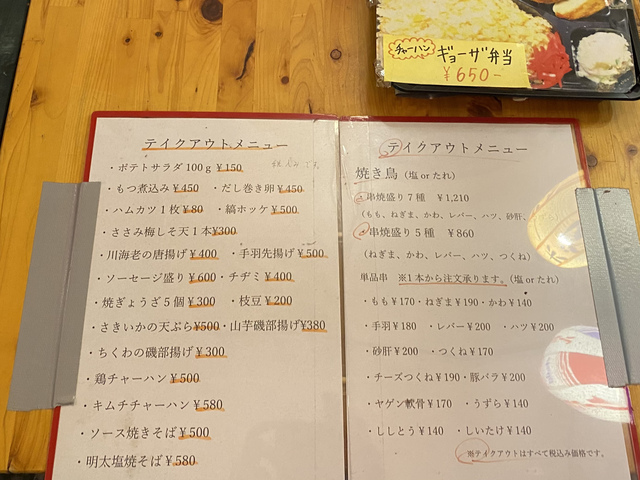 チャーハン
ギョーザ弁当
￥650-
テイクアウトメニュー
・ポテトサラダ100ｇ ¥150
・もつ煮込み¥450 ・だし巻き卵¥450
・ハムカツ1枚¥80 ・縞ホッケ¥500
・ささみ梅しそ天1本¥300
・川海老の唐揚げ¥400 ・手羽先揚げ¥500
・ソーセージ盛り¥600・チヂミ¥400
・焼ぎょうざ5個¥300 ・枝豆¥200
・さきいかの天ぷら¥500・山芋磯部揚げ¥380
・ちくわの磯部揚げ¥300
・鶏チャーハン¥500
・キムチチャーハン¥580
・ソース焼きそば¥500
・明太塩焼そば¥580
テイクアウトメニュー
焼き鳥（塩 or たれ）
・串焼盛り7種 ¥1,210
（もも、ねぎま、かわ、レバー、ハツ、砂肝、
・串焼盛り5種 ¥860
（ねぎま、かわ、レバー、ハツ、つくね）
単品串 ※1本から注文承ります。（塩 or たれ）
・もも¥170・ねぎま¥190・かわ¥140
・手羽¥180 ・レバー¥200 ・ハツ¥200
・砂肝¥200 ・つくね¥170
・チーズつくね¥190・豚バラ¥200
・ヤゲン軟骨¥170 ・うずら¥140
・ししとう¥140 ・しいたけ¥140
※テイクアウトはすべて税込み価格です。